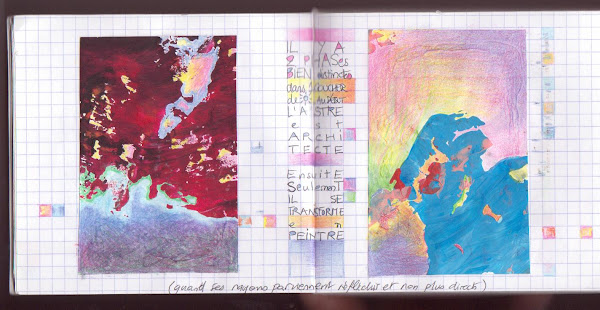 IL Y A
2 PHASES
BIEN distinctes
dans LE COUCHER
de SOLEIL AVANT
L'ASTRE
est
ARCHI
TECTE
Ensuite
Seulement
IL SE
TRANSFORME
en
PEINTRE
(quand ses rayons parviennent réfléchis et non plus directs)